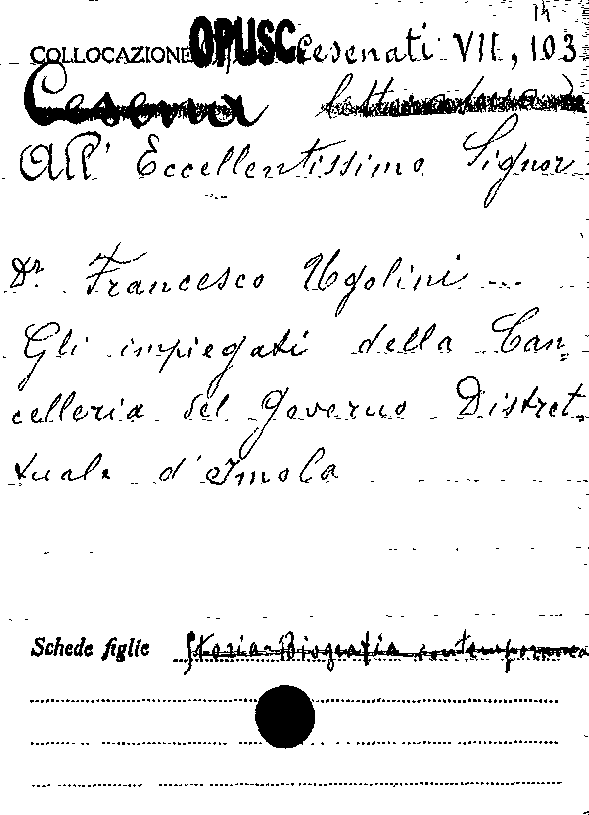 14
COLLOCAZIONE OPUSC. Cesenati VII, 103
Cesena
All' Eccellentissimo Signor
Dr. Francesco Ugolini ...
Gli impiegati della Can=
celleria del Governo Distret=
tuale d'Imola
Schede figlie Storia-Biografia contemporanea